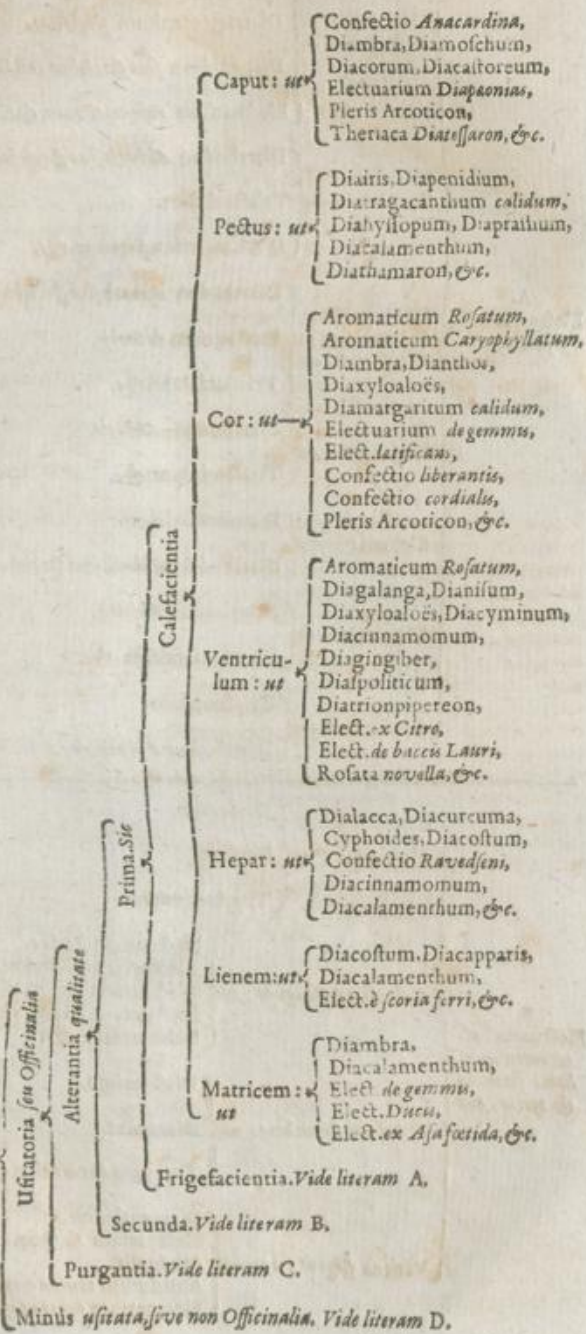 Confectio Anacardina,
Diambra, Diamoſchum,
Diacorum, Diacaſtoreum,
Electuarium Diapæonias,
Pleris Arcoticon,
Theriaca Diateſſaron, &c.
Caput: ut
Diairis, Diapenidium,
Diatragacanthum calidum,
Diahyſſopum, Diapraſſium,
Diacalamenthum,
Diathamaron, &c.
Pectus: ut
Aromaticum Roſatum,
Aromaticum Caryophyllatum,
Diambra, Dianthos,
Diaxyloaloës,
Diamargaritum calidum,
Electuarium de gemmis,
Elect. lætificans,
Confectio liberantis,
Confectio cordialis,
Pleris Arcoticon, &c.
Cor: ut
Aromaticum Roſatum,
Diagalanga, Dianiſum,
Diaxyloaloës, Diacyminum,
Diacinnamomum,
Diagingiber,
Diaſpoliticum,
Diatrionpipereon,
Elect. ex Citro,
Elect. de baccis Lauri,
Roſata novella, &c.
Ventricu-
lum: ut
Dialacca, Diacurcuma,
Cyphoides, Diacoſtum,
Confectio Ravedſeni,
Diacinnamomum,
Diacalamenthum, &c.
Hepar: ut
Diacoſtum. Diacapparis,
Diacalamenthum,
Elect. è ſcoria ferri, &c.
Lienem: ut
Diambra,
Diacalamenthum,
Elect. de gemmis,
Elect. Ducis,
Elect. ex Aſa fœtida, &c.
Matricem:
ut
Calefacientia
Frigefacientia. Vide literam A.
Prima. Sic
Secunda. Vide literam B.
Alterantia qualitate
Purgantia. Vide literam C.
Uſitatoria ſeu Officinalia
Minùs uſitata, ſive non Officinalia. Vide literam D.